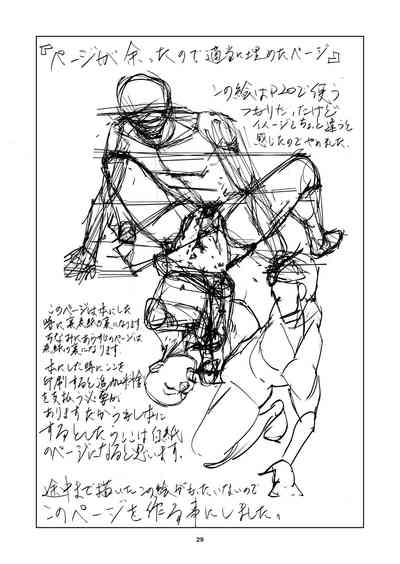 『ページが余ったので適当に埋めたページ』
この絵はP20で使う
つもりだったけど
イメージとちょっと違うと
感じたのでやめました
このページは本にした
時に裏表紙の裏になります
ちなみに
表紙の裏になります.
本にした時にここを
印刷すると追加料金
を支払う必要が
ありますだからもし本に
するとしたらここは白紙
のページになると思います.
途中まで描いたこの絵がもったいないので
このページを作る事にしました.
29